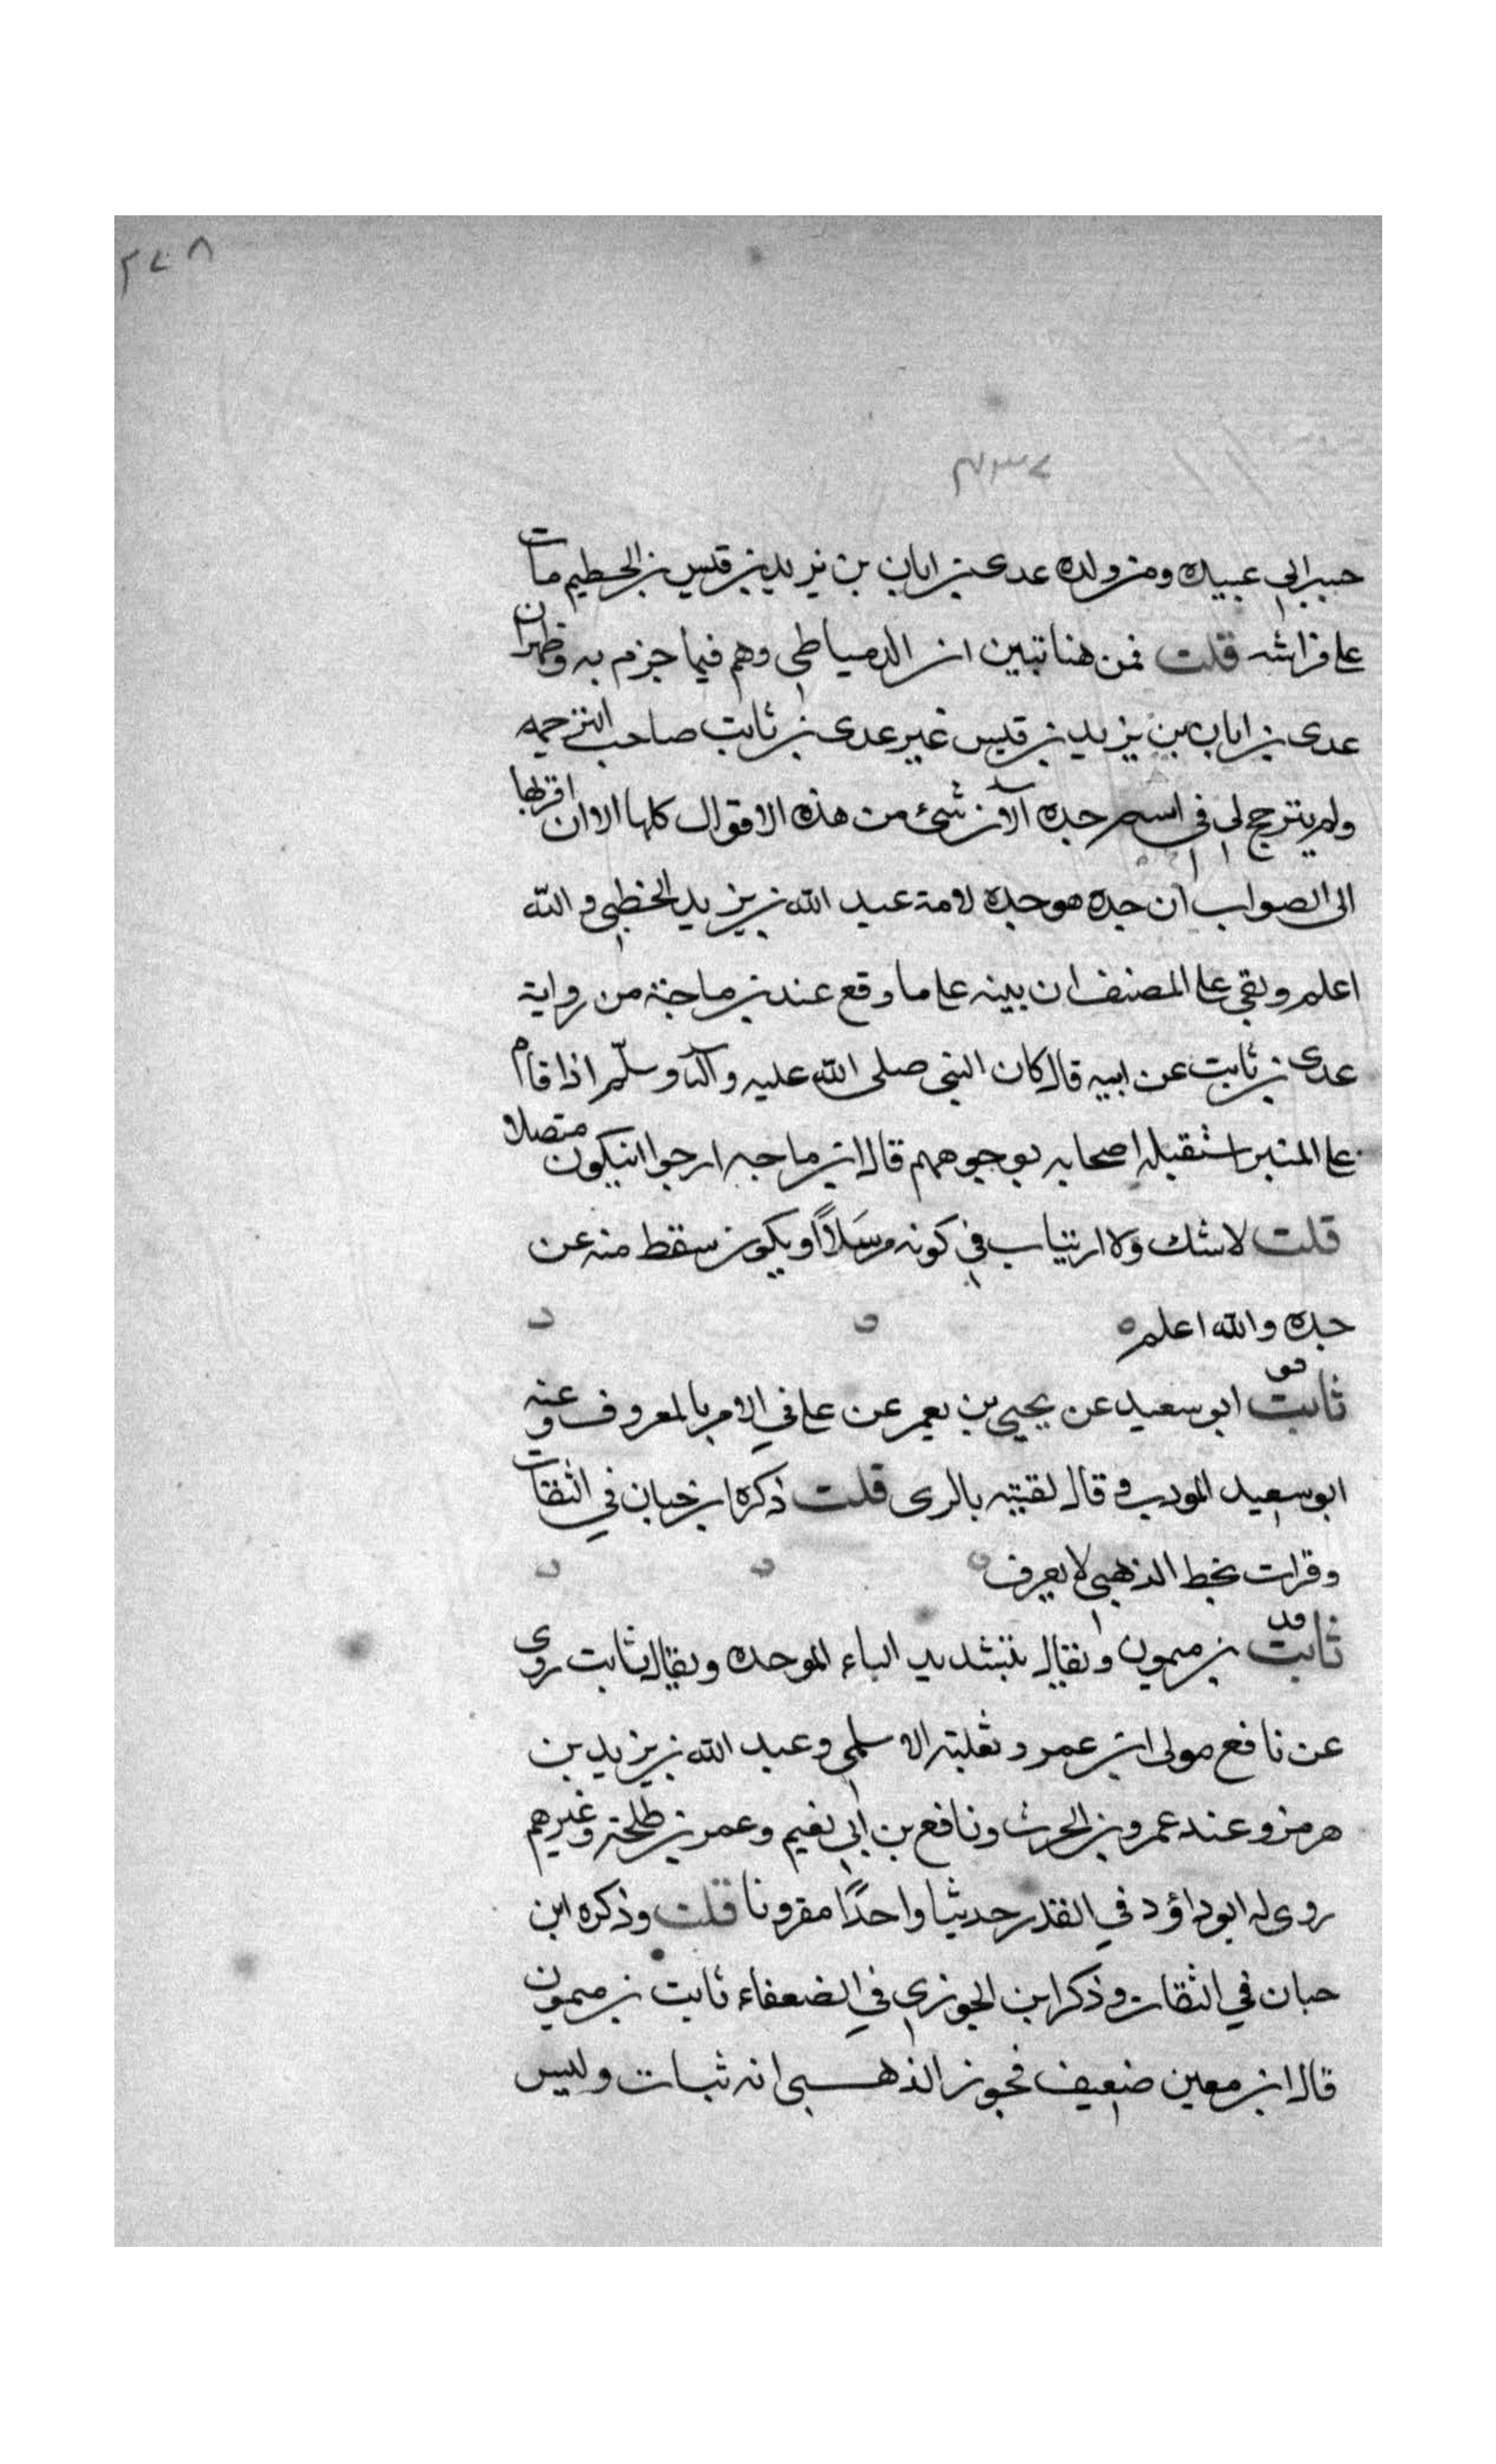 ٢٤٨
جبر ابي عبيده ومن ولده عدى بن ابان بن يزيد بن قيس بن الخطيم مات
على فراشه قلت فمن هنا تبين ان الدمياطي وهم فيما جزم به وظهر ان
عدى بن ابان بن يزيد بن قيس غير عدى بن ثابت صاحب الترجمه
ولم يترجح لى فى اسم جده الآن شئ من هذه الاقوال كلها الا ان اقربها
الى الصواب ان جده هو جده لامه عبد الله بن يزيد الخطمي والله
اعلم وبقي على المصنف ان بينه على ما وقع عند بن ماجة من رواية
عدى بن ثابت عن ابيه قال كان النبى صلى الله عليه وآله وسلّم اذا قام
على المنبر استقبله اصحابه بوجوههم قال ابن ماجه ارجوا ان يكون متصلا
قلت لا شك ولا ارتياب في كونه مرسَلاً او يكون سقط منه عن
جده والله اعلم
ثابت ابو سعيد عن يحيى بن يعمر عن على في الامر بالمعروف وعنه
ابو سعيد المودب وقال لقيته بالرى قلت ذكره ابن حبان في الثقات
وقرات بخط الذهبي لا يعرف
ثابت بن ميمون ويقال بتشديد الباء الموحده ويقال ثابت روى
عن نافع مولى ابن عمر وثعلبة الاسلمي وعبد الله بن يزيد بن
هرمز وعنه عمرو بن الحرث ونافع بن ابي نعيم وعمر بن طلحة وغيرهم
روى له ابو داؤد في القدر حديثا واحدًا مقرونا قلت وذكره ابن
حبان في الثقات وذكر ابن الجوزي في الضعفاء ثابت بن ميمون
قال ابن معين ضعيف فجوز الذهبي انه ثبات وليس